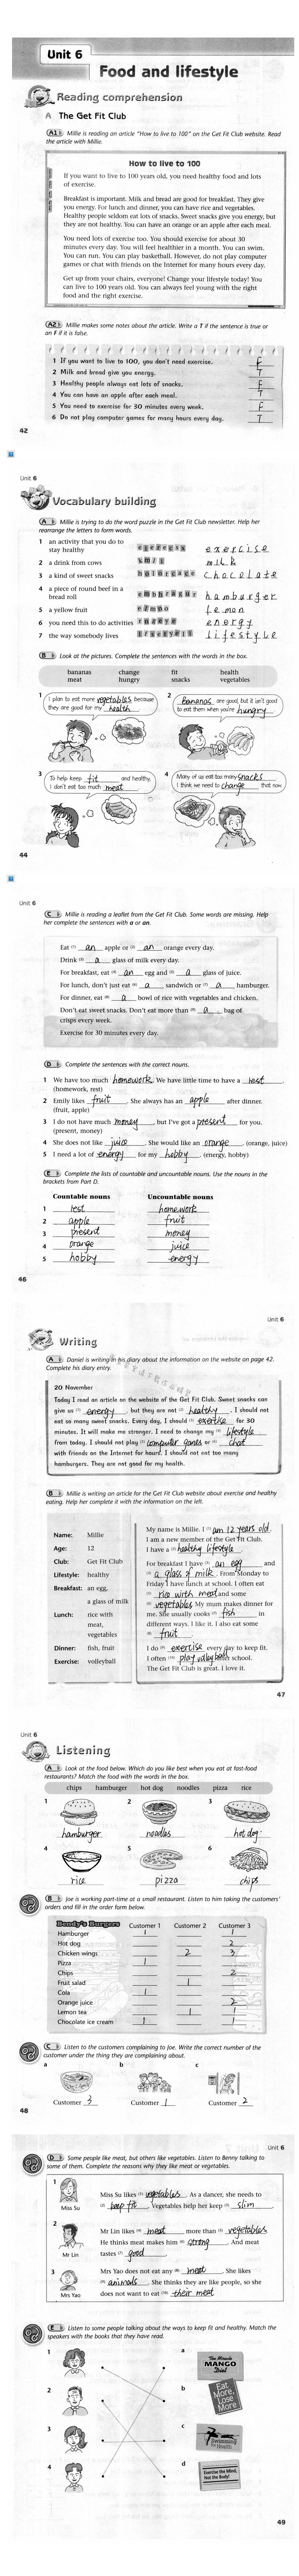 Unit 6
Food and lifestyle
Reading comprehension
A The Get Fit Club
A1 Millie is reading an article "How to live to 100" on the Get Fit Club website. Read
the article with Millie.
How to live to 100
If you want to live to 100 years old, you need healthy food and lots
of exercise.
Breakfast is important. Milk and bread are good for breakfast. They give
you energy. For lunch and dinner, you can have rice and vegetables.
Healthy people seldom eat lots of snacks. Sweet snacks give you energy, but
they are not healthy. You can have an orange or an apple after each meal.
You need lots of exercise too. You should exercise for about 30
minutes every day. You will feel healthier in a month. You can swim.
You can run. You can play basketball. However, do not play computer
games or chat with friends on the Internet for many hours every day.
Get up from your chairs, everyone! Change your lifestyle today! You
can live to 100 years old. You can always feel young with the right
food and the right exercise.
A2 Millie makes some notes about the article. Write a T if the sentence is true or
an F if it is false.
1 If you want to live to 100, you don't need exercise. F
2 Milk and bread give you energy. T
3 Healthy people always eat lots of snacks. F
4 You can have an apple after each meal. T
5 You need to exercise for 30 minutes every week. F
6 Do not play computer games for many hours every day. T
42
Unit 6
Vocabulary building
A Millie is trying to do the word puzzle in the Get Fit Club newsletter. Help her
rearrange the letters to form words.
1 an activity that you do to
stay healthy
exercise
2 a drink from cows
milk
3 a kind of sweet snacks
chocolate
4 a piece of round beef in a
bread roll
hamburger
5 a yellow fruit
lemon
6 you need this to do activities
energy
7 the way somebody lives
lifestyle
B Look at the pictures. Complete the sentences with the words in the box.
bananas change fit health
meat hungry snacks vegetables
1 I plan to eat more vegetables because
they are good for my health
2 Bananas are good, but it isn't good
to eat them when you're hungry
3 To help keep fit and healthy,
I don't eat too much meat
4 Many of us eat too many snacks
I think we need to change that now.
44
Unit 6
C Millie is reading a leaflet from the Get Fit Club. Some words are missing. Help
her complete the sentences with a or an.
Eat (1) an apple or (2) an orange every day.
Drink (3) a glass of milk every day.
For breakfast, eat (4) an egg and (5) a glass of juice.
For lunch, don't just eat (6) a sandwich or (7) a hamburger.
For dinner, eat (8) a bowl of rice with vegetables and chicken.
Don't eat sweet snacks. Don't eat more than (9) a bag of
crisps every week.
Exercise for 30 minutes every day.
D Complete the sentences with the correct nouns.
1 We have too much homework. We have little time to have a rest.
(homework, rest)
2 Emily likes fruit. She always has an apple after dinner.
(fruit, apple)
3 I do not have much money, but I've got a present for you.
(present, money)
4 She does not like juice. She would like an orange. (orange, juice)
5 I need a lot of energy for my hobby. (energy, hobby)
E Complete the lists of countable and uncountable nouns. Use the nouns in the
brackets from Part D.
Countable nouns Uncountable nouns
1 rest homework
2 apple fruit
3 present money
4 orange juice
5 hobby energy
46
Unit 6
Writing
A Daniel is writing in his diary about the information on the website on page 42.
Complete his diary entry.
20 November
Today I read an article on the website of the Get Fit Club. Sweet snacks can
give us (1) energy, but they are not (2) healthy. I should not
eat so many sweet snacks. Every day, I should (3) exercise for 30
minutes. It will make me stronger. I need to change my (4) lifestyle
from today. I should not play (5) computer games or (6) chat
with friends on the Internet for hours. I should not eat too many
hamburgers. They are not good for my health.
B Millie is writing an article for the Get Fit Club website about exercise and healthy
eating. Help her complete it with the information on the left.
Name: Millie
Age: 12
Club: Get Fit Club
Lifestyle: healthy
Breakfast: an egg,
a glass of milk
Lunch: rice with
meat,
vegetables
Dinner: fish, fruit
Exercise: volleyball
My name is Millie. I (1) am 12 years old.
I am a new member of the Get Fit Club.
I have a (2) healthy lifestyle.
For breakfast I have (3) an egg and
(4) a glass of milk. From Monday to
Friday I have lunch at school. I often eat
(5) rice with meat and some
(6) vegetables. My mum makes dinner for
me. She usually cooks (7) fish in
different ways. I like it. I also eat some
(8) fruit.
I do (9) exercise every day to keep fit.
I often (10) play volleyball after school.
The Get Fit Club is great. I love it.
47
Unit 6
Listening
A Look at the food below. Which do you like best when you eat at fast-food
restaurants? Match the food with the words in the box.
chips hamburger hot dog noodles pizza rice
1 2 3
hamburger noodles hot dog
4 5 6
rice pizza chips
B Joe is working part-time at a small restaurant. Listen to him taking the customers'
orders and fill in the order form below.
Bendy's Burgers Customer 1 Customer 2 Customer 3
Hamburger 1 1
Hot dog 2
Chicken wings 2 3
Pizza 1
Chips 2
Fruit salad 1
Cola 1
Orange juice 2
Lemon tea 1 1
Chocolate ice cream 1 1
C Listen to the customers complaining to Joe. Write the correct number of the
customer under the thing they are complaining about.
a b c
Customer 3 Customer 1 Customer 2
48
Unit 6
D Some people like meat, but others like vegetables. Listen to Benny talking to
some of them. Complete the reasons why they like meat or vegetables.
1
Miss Su
Miss Su likes (1) vegetables. As a dancer, she needs to
(2) keep fit. Vegetables help her keep (3) slim.
2
Mr Lin
Mr Lin likes (4) meat more than (5) vegetables
He thinks meat makes him (6) strong. And meat
tastes (7) good.
3
Mrs Yao
Mrs Yao does not eat any (8) meat. She likes
(9) animals. She thinks they are like people, so she
does not want to eat (10) their meat
E Listen to some people talking about the ways to keep fit and healthy. Match the
speakers with the books that they have read.
1 a
The Miracle
MANGO
Diet
2 b
Eat
More,
Lose
More
3 c
Swimming
for Health
4 d
Exercise the Mind,
Not the Body!
49